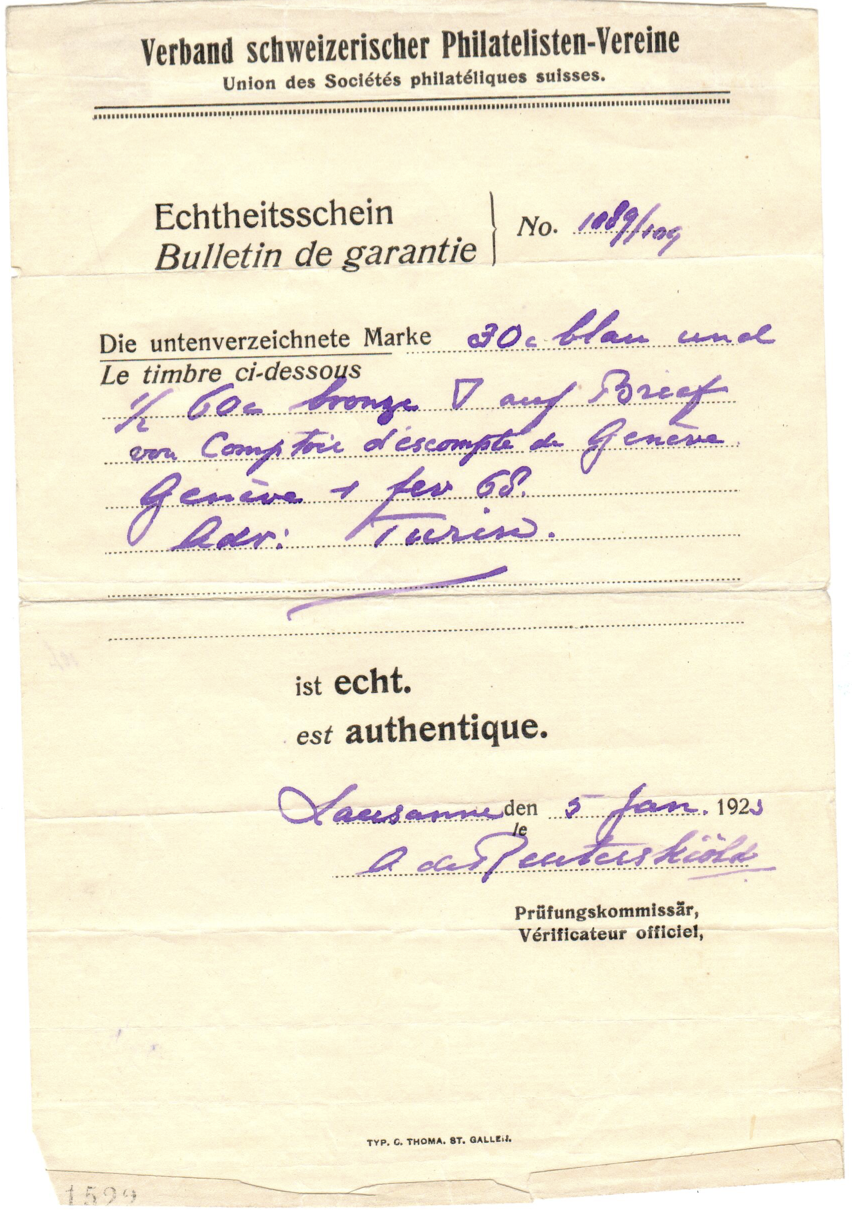 Verband schweizerischer Philatelisten-Vereine
Union des Sociétés philatéliques suisses.
Echtheitsschein
Bulletin de garantie
No. 1089/109
Die untenverzeichnete Marke 30c blau und
Le timbre ci-dessous
1/2 60c bronze ▽ auf Brief
von Comptoir d'escompte de Genève
Genève 1 fev 68.
Adr: Turin.
ist echt.
est authentique.
Lausanne den 5 Jan. 1923
le
A de Reuterskiöld
Prüfungskommissär,
Vérificateur officiel,
TYP. C. THOMA. ST. GALLEN.
1529